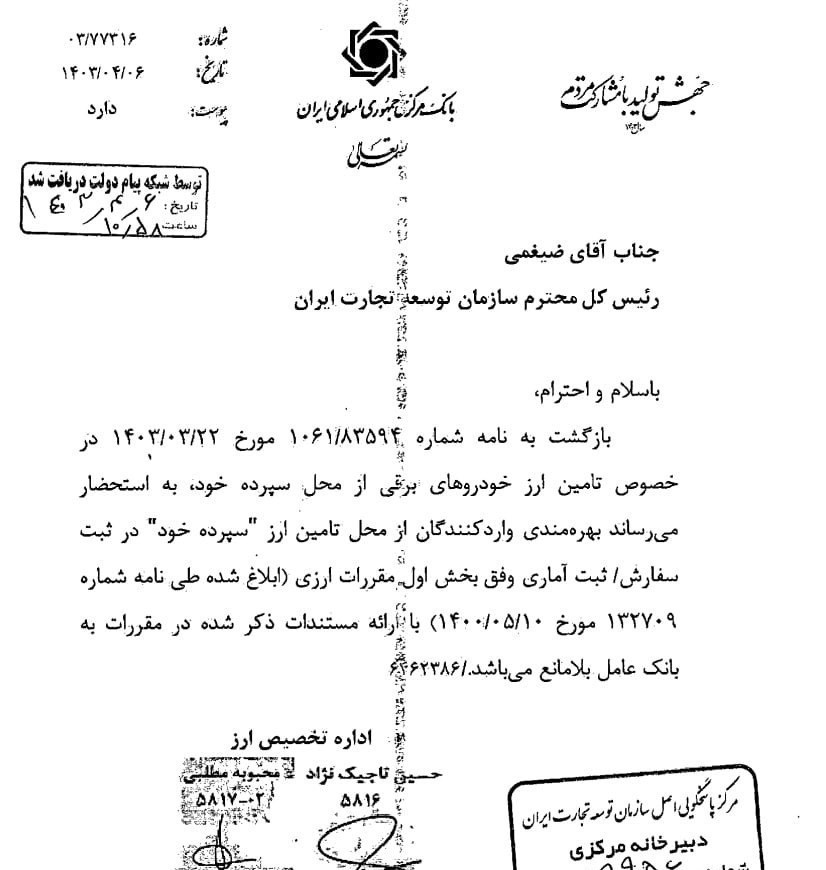 شماره: ۰۳/۷۷۳۱۶
تاریخ: ۱۴۰۳/۰۴/۰۶
پیوست: دارد
بانک مرکزی جمهوری اسلامی ایران
بسمه تعالی
جهش تولید با مشارکت مردم
توسط شبکه پیام دولت دریافت شد
تاریخ: ۱۴۰۳/۴/۶
ساعت ۱۰/۵۸
جناب آقای ضیغمی
رئیس کل محترم سازمان توسعه تجارت ایران
باسلام و احترام,
بازگشت به نامه شماره ۱۰۶۱/۸۳۵۹۴ مورخ ۱۴۰۳/۰۳/۲۲ در
خصوص تامین ارز خودروهای برقی از محل سپرده خود، به استحضار
می‌رساند بهره‌مندی واردکنندگان از محل تامین ارز "سپرده خود" در ثبت
سفارش/ ثبت آماری وفق بخش اول مقررات ارزی (ابلاغ شده طی نامه شماره
۱۳۲۷۰۹ مورخ ۱۴۰۰/۰۵/۱۰) با ارائه مستندات ذکر شده در مقررات به
بانک عامل بلامانع می‌باشد./
اداره تخصیص ارز
حسین تاجیک نژاد محبوبه مطلبی
۵۸۱۶ ۵۸۱۷-۰۲
مرکز پاسخگویی اصل سازمان توسعه تجارت ایران
دبیرخانه مرکزی